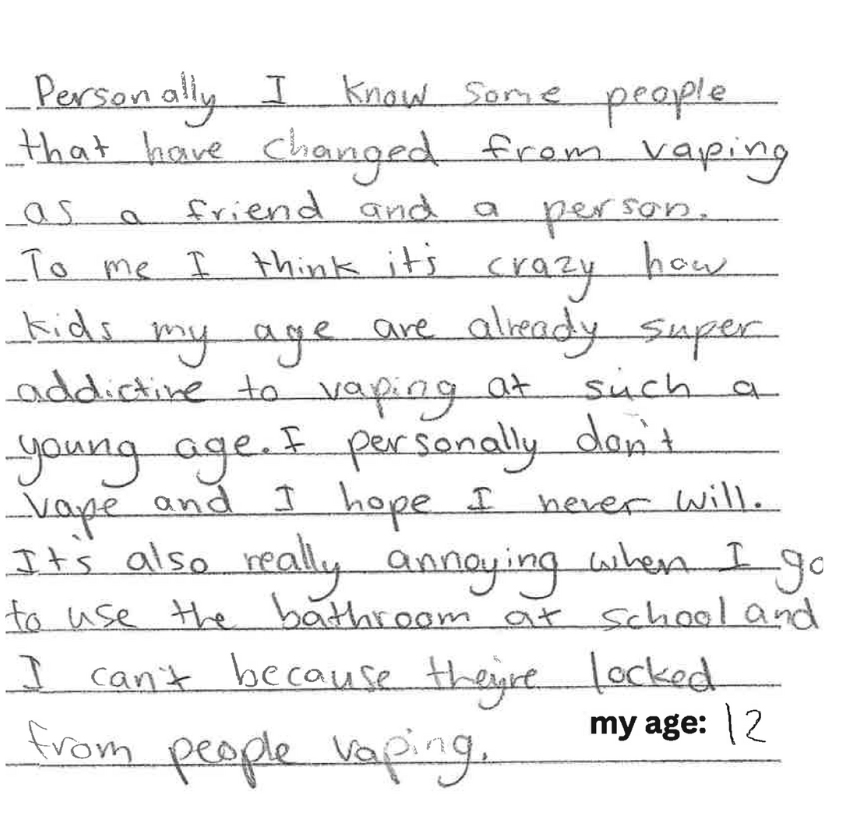 Personally I know some people
that have changed from vaping
as a friend and a person.
To me I think it's crazy how
kids my age are already super
addictive to vaping at such a
young age. I personally don't
vape and I hope I never will.
It's also really annoying when I go
to use the bathroom at school and
I can't because they're locked
from people vaping.
my age: 12